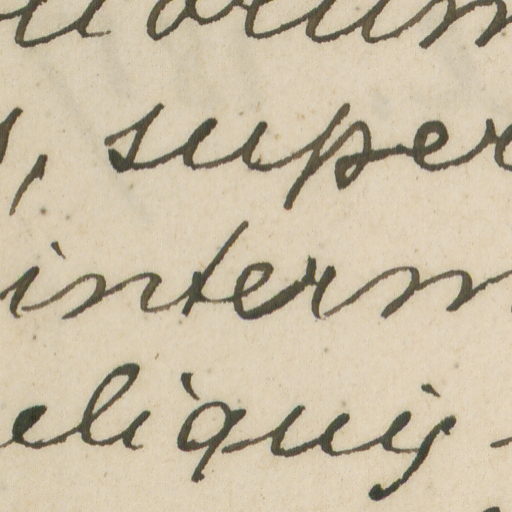 , super
interm
eliquis